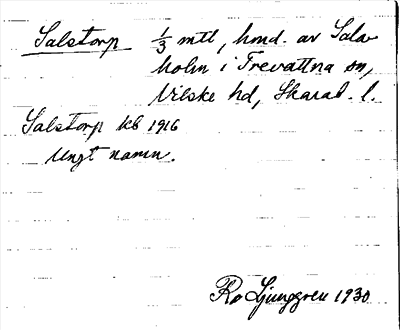 Salstorp ⅓ mtl, hmd. av Sala
holm i Trevattna sn,
Vilske hd, Skarab. l.
Salstorp kb 1916
Ungt namn.
Ro Ljunggren 1930